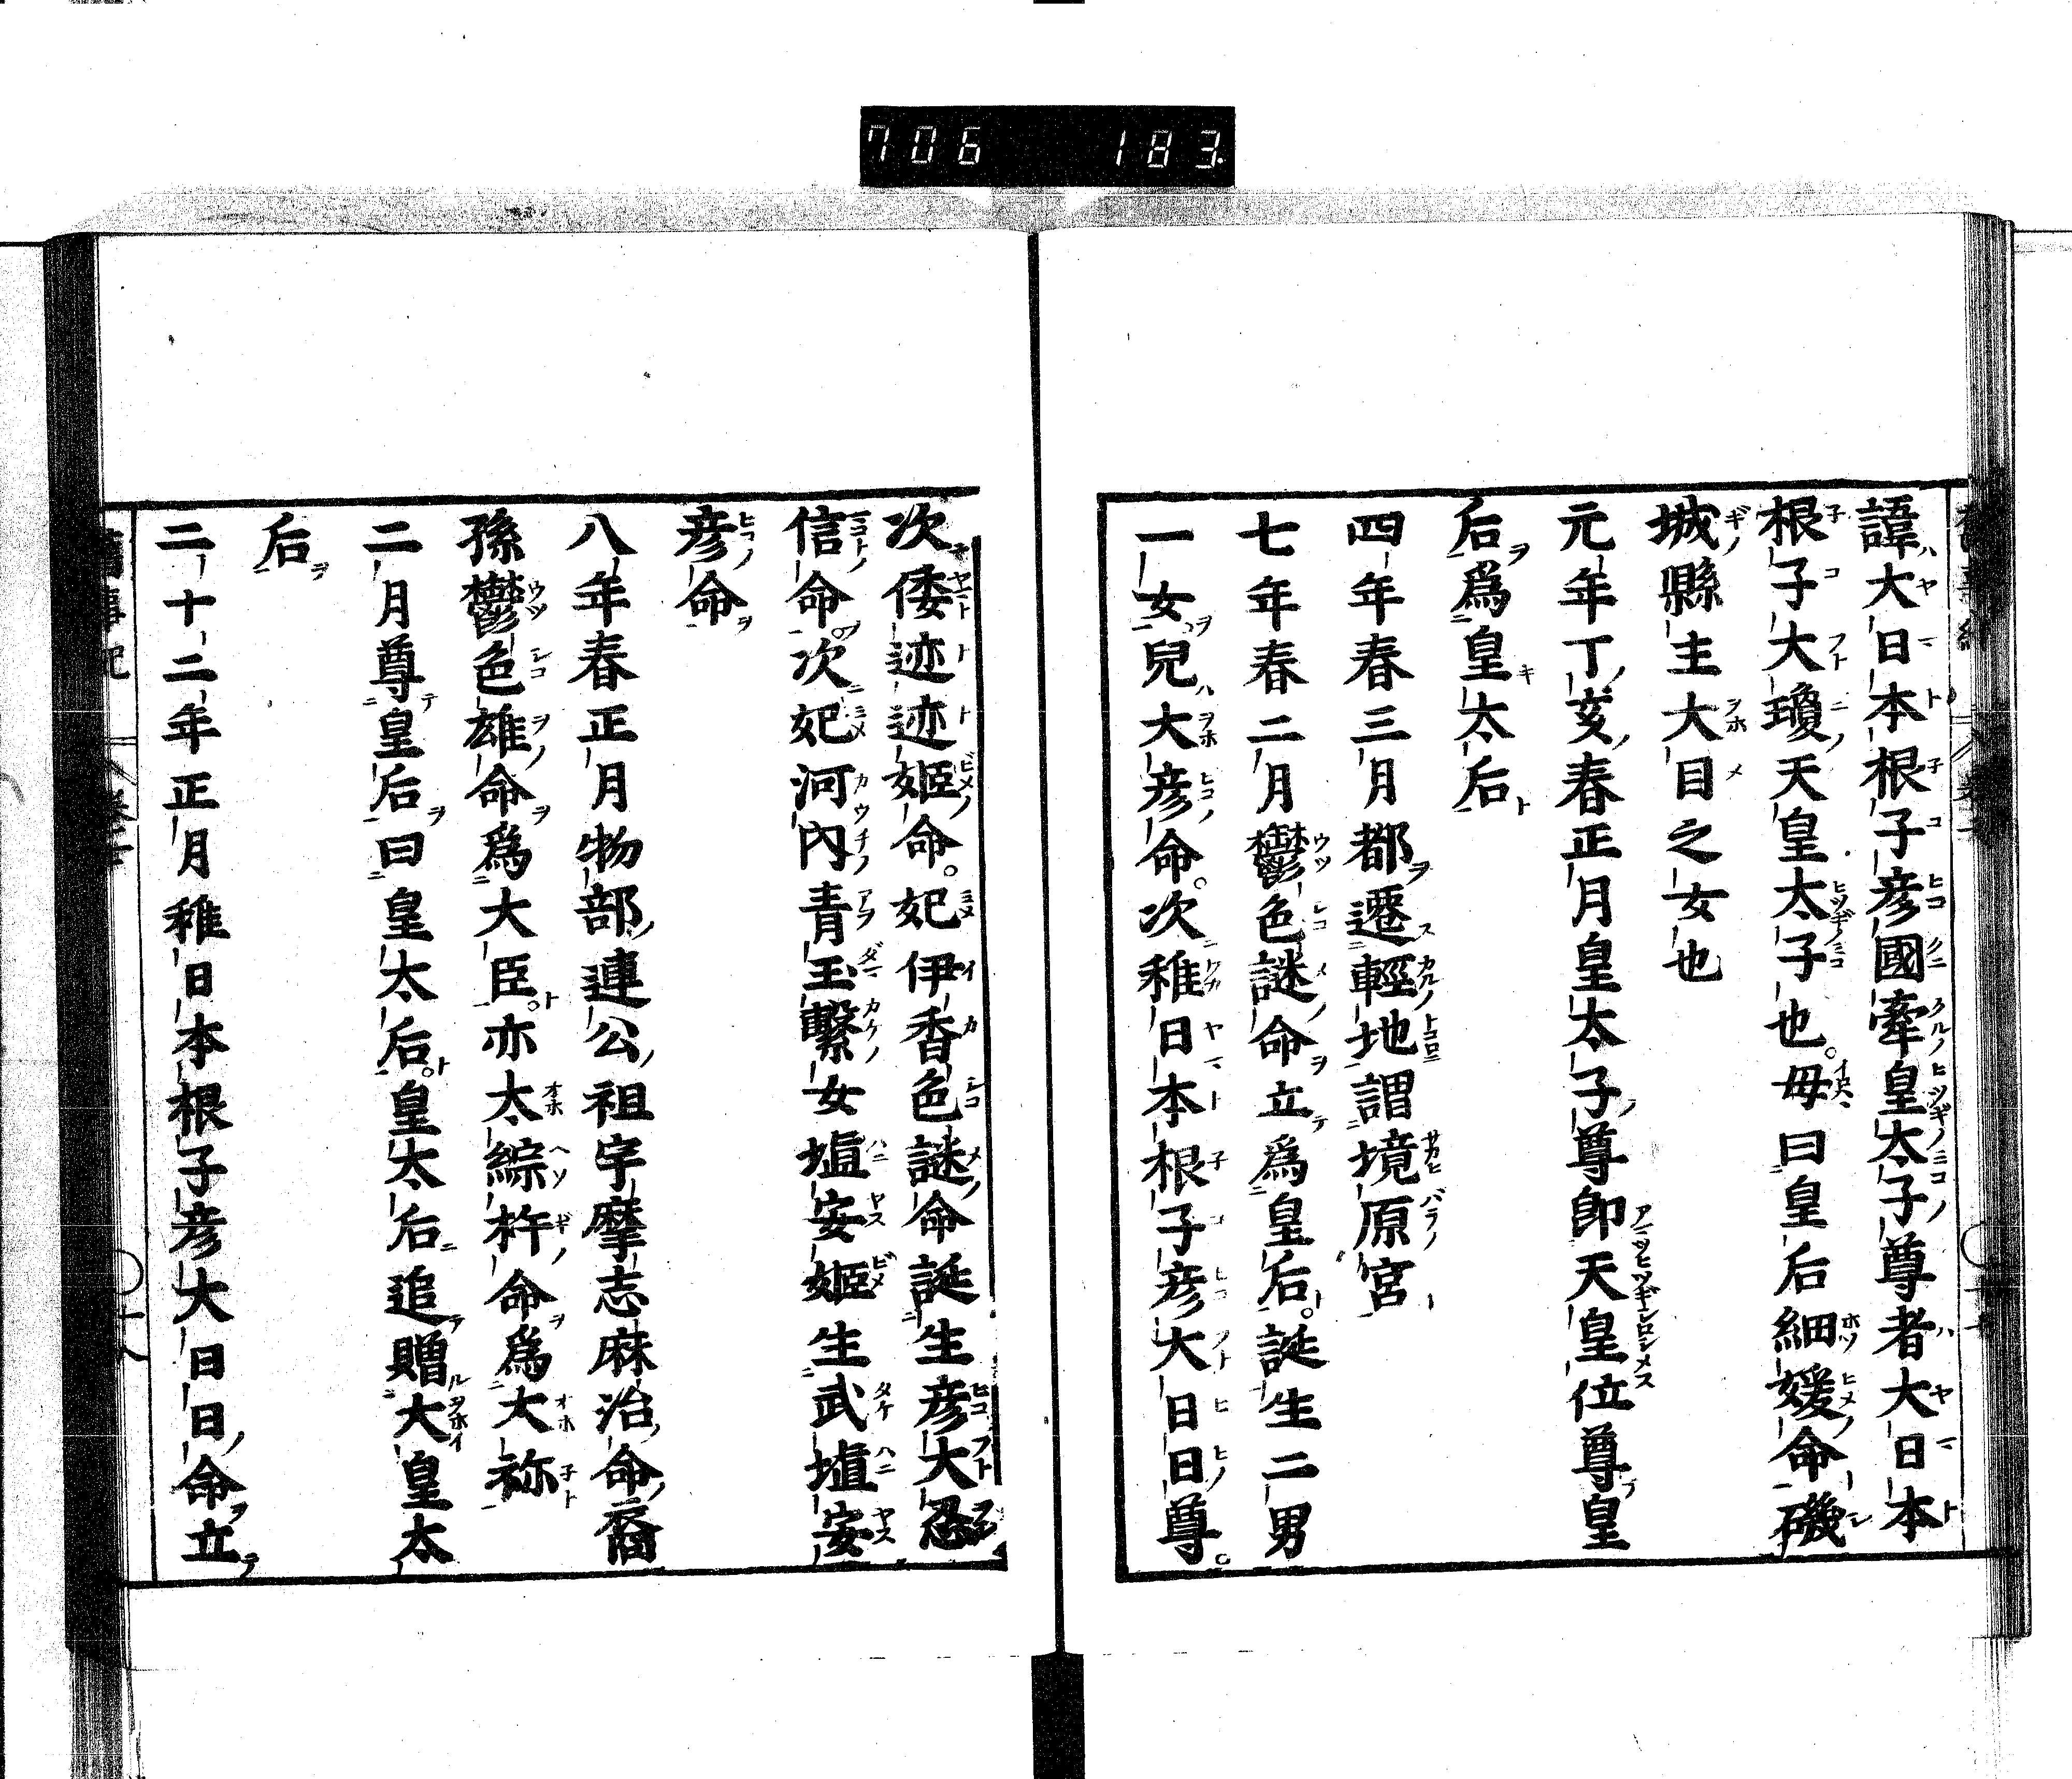 706 183
諱大日本根子彦國牽皇太子尊者大日本
根子大瓊天皇太子也。母曰皇后細媛命磯
城縣主大目之女也
元年丁亥春正月皇太子尊卽天皇位尊皇
后爲皇太后
四年春三月都遷輕地謂境原宮
七年春二月欝色謎命立爲皇后。誕生二男
一女兒大彦命。次稚日本根子彦大日日尊。
次倭迹迹姬命。妃伊香色謎命誕生彦太忍
信命。次妃河內青玉繫女埴安姬生武埴安
彦命
八年春正月物部連公祖宇摩志麻治命裔
孫欝色雄命爲大臣。亦太綜杵命爲大祢
二月尊皇后曰皇太后。皇太后追贈大皇太
后
二十二年正月稚日本根子彦大日日命立